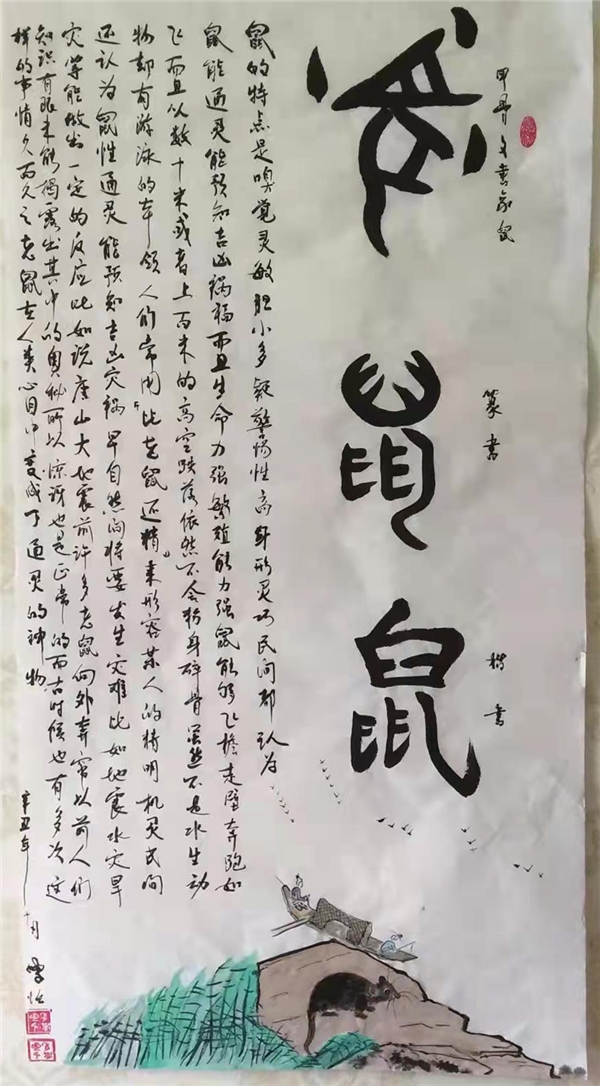 甲骨文書鼠
鼠
篆書
鼠
楷書
鼠的特点是嗅觉灵敏胆小多疑警惕性高身形灵巧民间都认为
鼠能通灵能预知吉凶祸福而且生命力强繁殖能力强鼠能够飞檐走壁奔跑如
飞而且从数十米或者上百米的高空跌落依然不会粉身碎骨虽然不是水生动
物却有游泳的本领人们常用“比老鼠还精”来形容某人的精明机灵民间
还认为鼠性通灵能预知吉凶灾祸早自然间将要发生灾难比如地震水灾旱
灾等能做出一定的反应比如说唐山大地震前许多老鼠向外奔窜以前人们
知识有限未能揭露出其中的奥秘所以惊讶也是正常的而古时候也有多次这
样的事情久而久之老鼠在人类心目中变成了通灵的神物
辛丑年十月